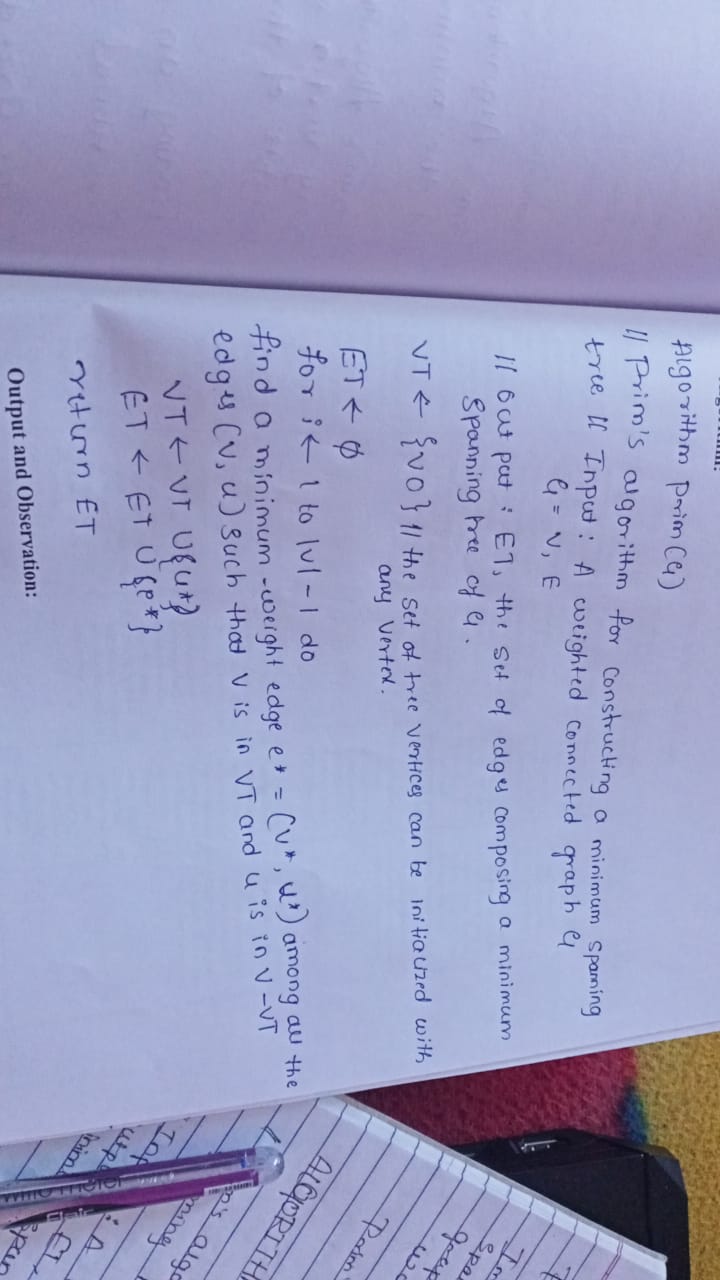 Algorithm Prim(G)
// Prim's algorithm for constructing a minimum spanning
tree // Input : A weighted connected graph G
G = V, E
// Output : ET, the set of edges composing a minimum
spanning tree of G.
VT ← {VO} // the set of tree vertices can be initialized with
any vertex.
ET ← ∅
for i ← 1 to |V| - 1 do
find a minimum-weight edge e* = (v*, u*) among all the
edges (V, u) such that v is in VT and u is in V-VT
VT ← VT U{u*}
ET ← ET U{e*}
return ET
Output and Observation:
ALGORITH
: A
ET,